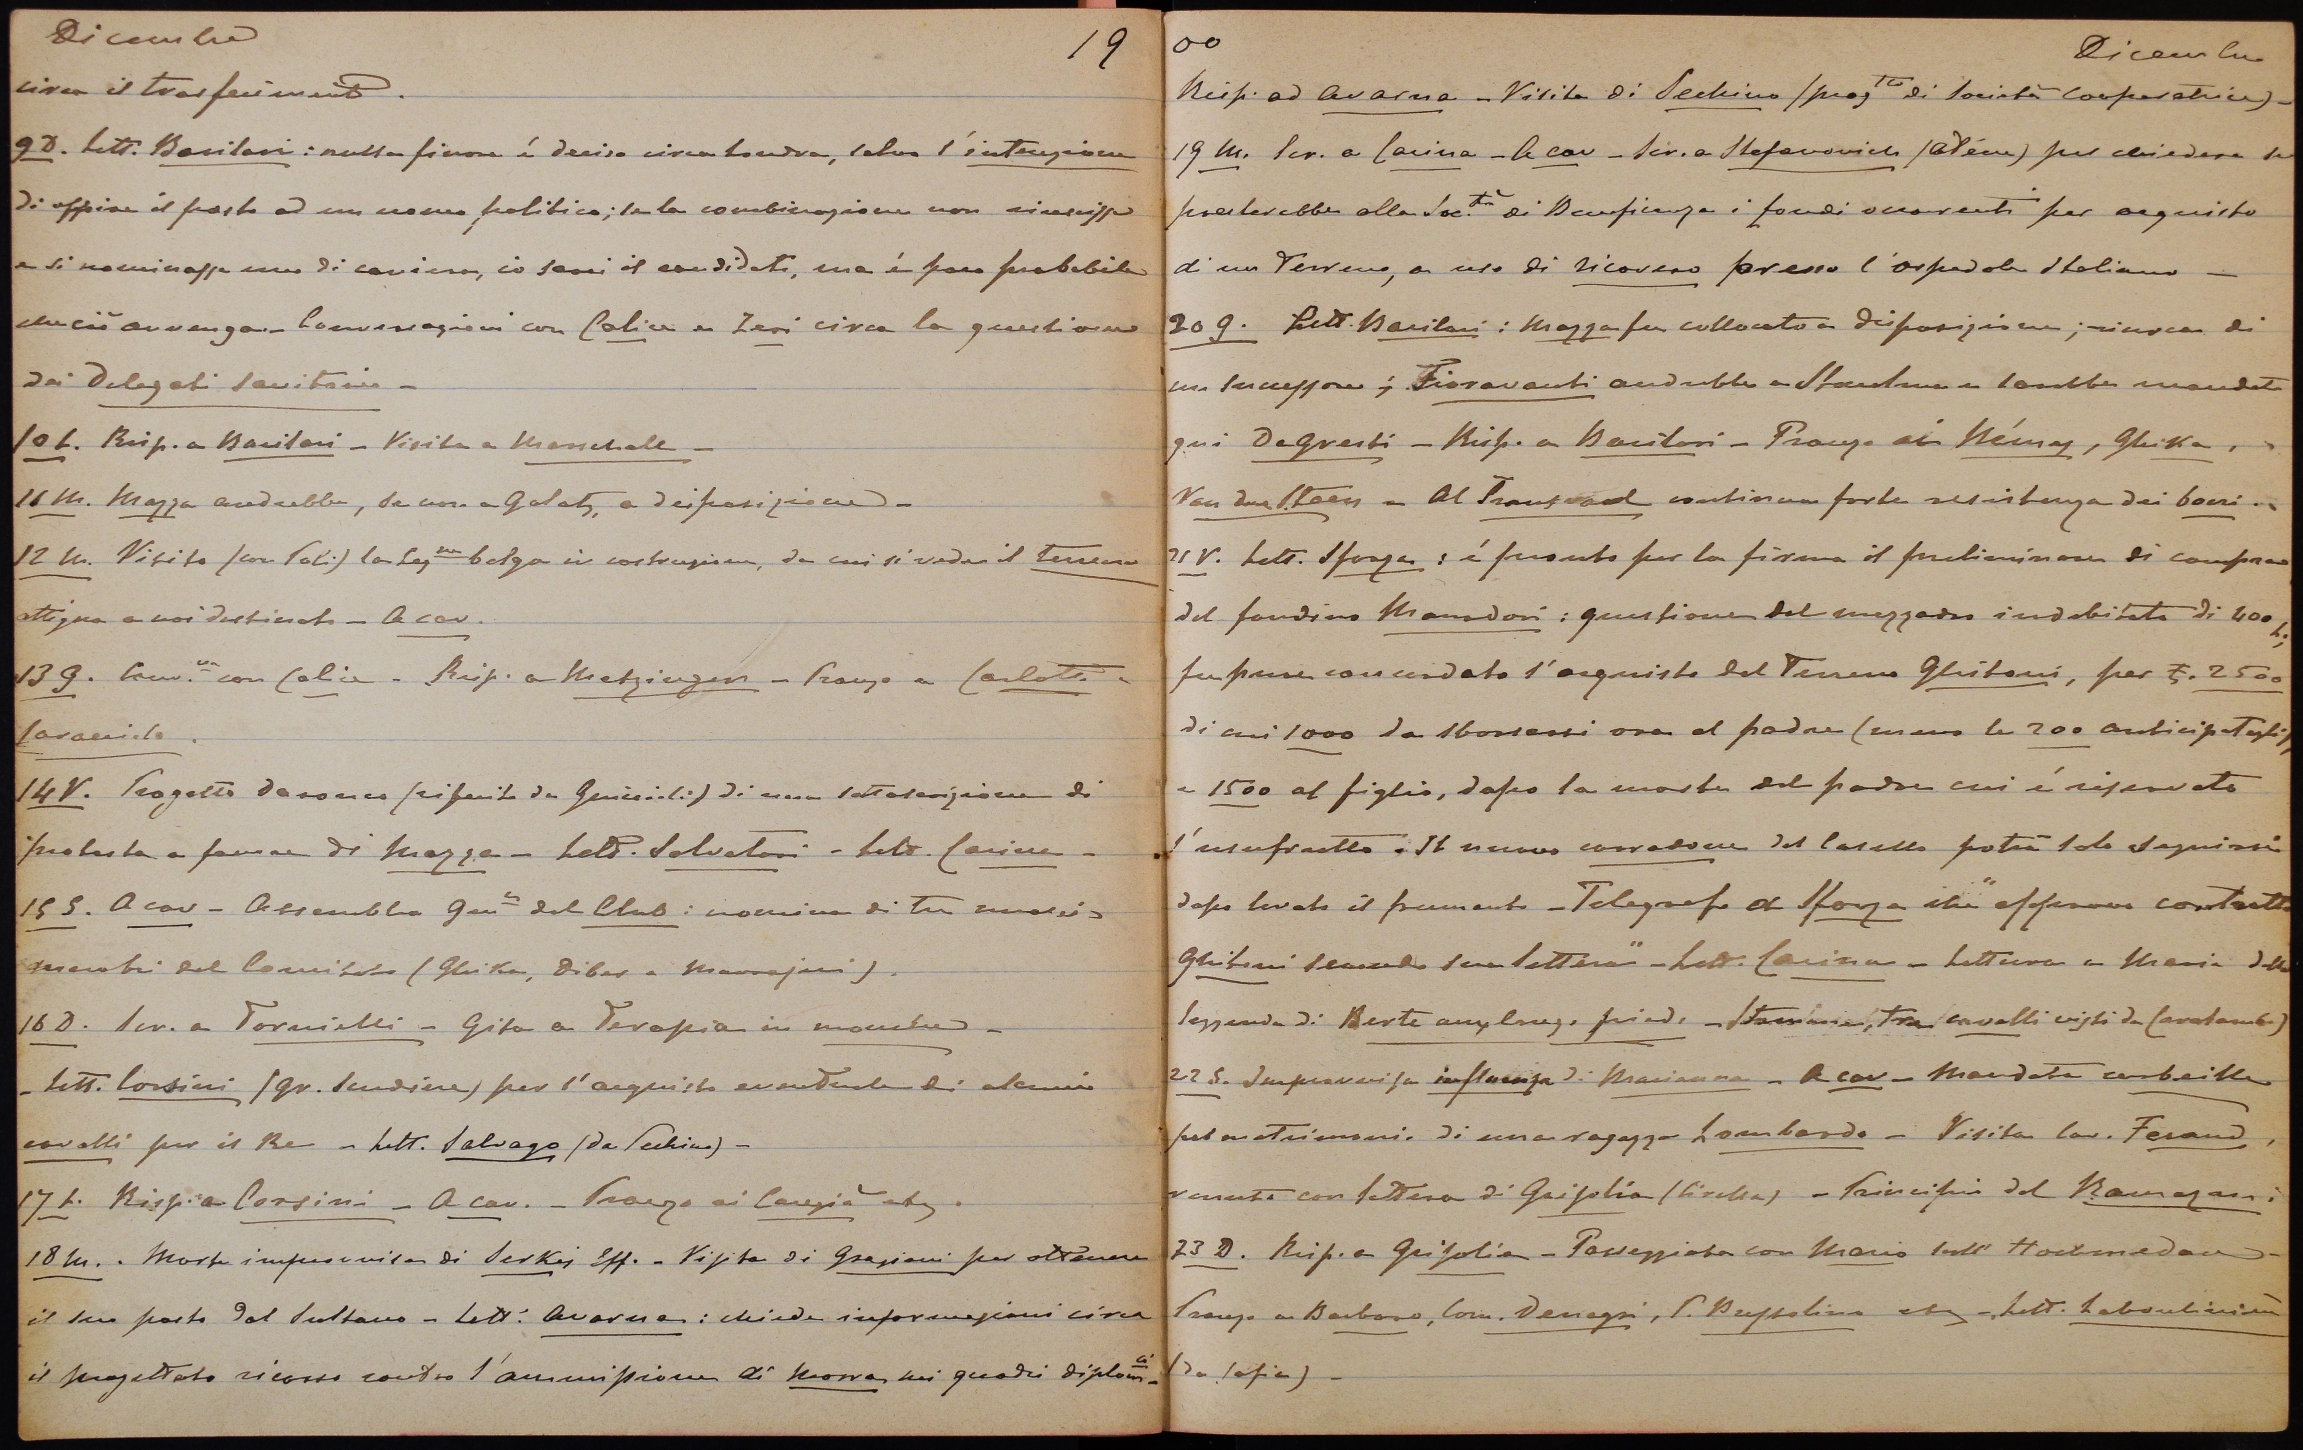 Dicembre 19
circa il trasferimento.
9 D. Lett. Basilari: nulla finora é deciso circa Londra, salvo l'intenzione
di offrire il posto ad un uomo politico; se la combinazione non riuscisse
e si nominasse uno di carriera, io sarei il candidato, ma é poco probabile
che ciò avvenga - Conversazioni con Calice e Zeri circa la questione
dei Delegati Sanitari -
10 L. Risp. a Basilari - Visita a Marschall -
11 M. Mazza andrebbe, se non a Galatz, a disposizione -
12 M. Visito (con) la Leg.ne belga in costruzione, da cui si vede il terreno
attiguo a noi destinato - A cav.
13 G. Conv.ne con Calice - Risp. a - Pranzo a Carlotti e
14 V. Progetto Daronco (riferito da) di una sottoscrizione di
protesta a favore di Mazza - Lett. Salvatori - Lett. Carina -
15 S. A cav - Assemblea Gen.le del Club: nomina di tre nuovi
membri del Comitato (Ghika, e).
16 D. Scr. a Tornielli - Gita a Terapia in mouche -
- Lett. Corsini (gr. Scudiere) per l'acquisto eventuale di alcuni
cavalli per il Re - Lett. Salvago (da Pechino) -
17 L. Risp. a Corsini - A cav. - Pranzo ai etz.
18 M. - Morte improvvisa di Serkis Eff. - Visita di Graziani per ottenere
il suo posto dal Sultano - Lett. Avarna: chiede informazioni circa
il progettato ricorso contro l'ammissione di Morra nei quadri diplom.ci -
00 Dicembre
Risp. ad Avarna - Visita di (prog.tto di Società Cooperatrice) -
19 M. Scr. a Carina - A cav - Scr. a Stefanovich (Atene) per chiedere se
presterebbe alla Soc.tà di Beneficenza i fondi occorrenti per acquisto
di un Terreno, a uso di ricovero presso l'ospedale Italiano -
20 G. Lett. Basilari: Mazza fu collocato a disposizione; ricerca di
un successore; Fioravanti andrebbe a e sarebbe mandato
qui Dagresti - Risp. a Basilari - Pranzo ai Némay, Ghika, e
Van der Steen - Al Transvaal continua forte resistenza dei boeri.
21 V. Lett. Sforza: é pronto per la firma il preliminare di compra
del fondino Manadori: questione del mezzadro indebitato di 400 L;
fu pure concordato l'acquisto del Terreno Ghitoni, per £. 2500
di cui 1000 da sborsarsi ora al padre (meno le 200 anticipategli),
e 1500 al figlio, dopo la morte del padre cui é riservato
l'usufrutto. Il nuovo corradone del Casello potrà solo eseguirsi
dopo levato il frumento - Telegrafo a Sforza che "approvo contratto
Ghitoni secondo sua lettera" - Lett. Carina - Lettura a Maria della
leggenda di Berte aux longs pieds - tre cavalli visti da
22 S. Improvvisa influenza di Marianna - A cav - Mandata corbeille
pel matrimonio di una ragazza Lombardo - Visita Cav. Ferand,
venuto con lettera di Grisolia - Principio del Ramazan:
23 D. Risp. a Grisolia - Passeggiata con Mario sull' Hockmedan -
Pranzo a Barbaro, Com. Denegri, etz - Lett.
(da Sofia) -